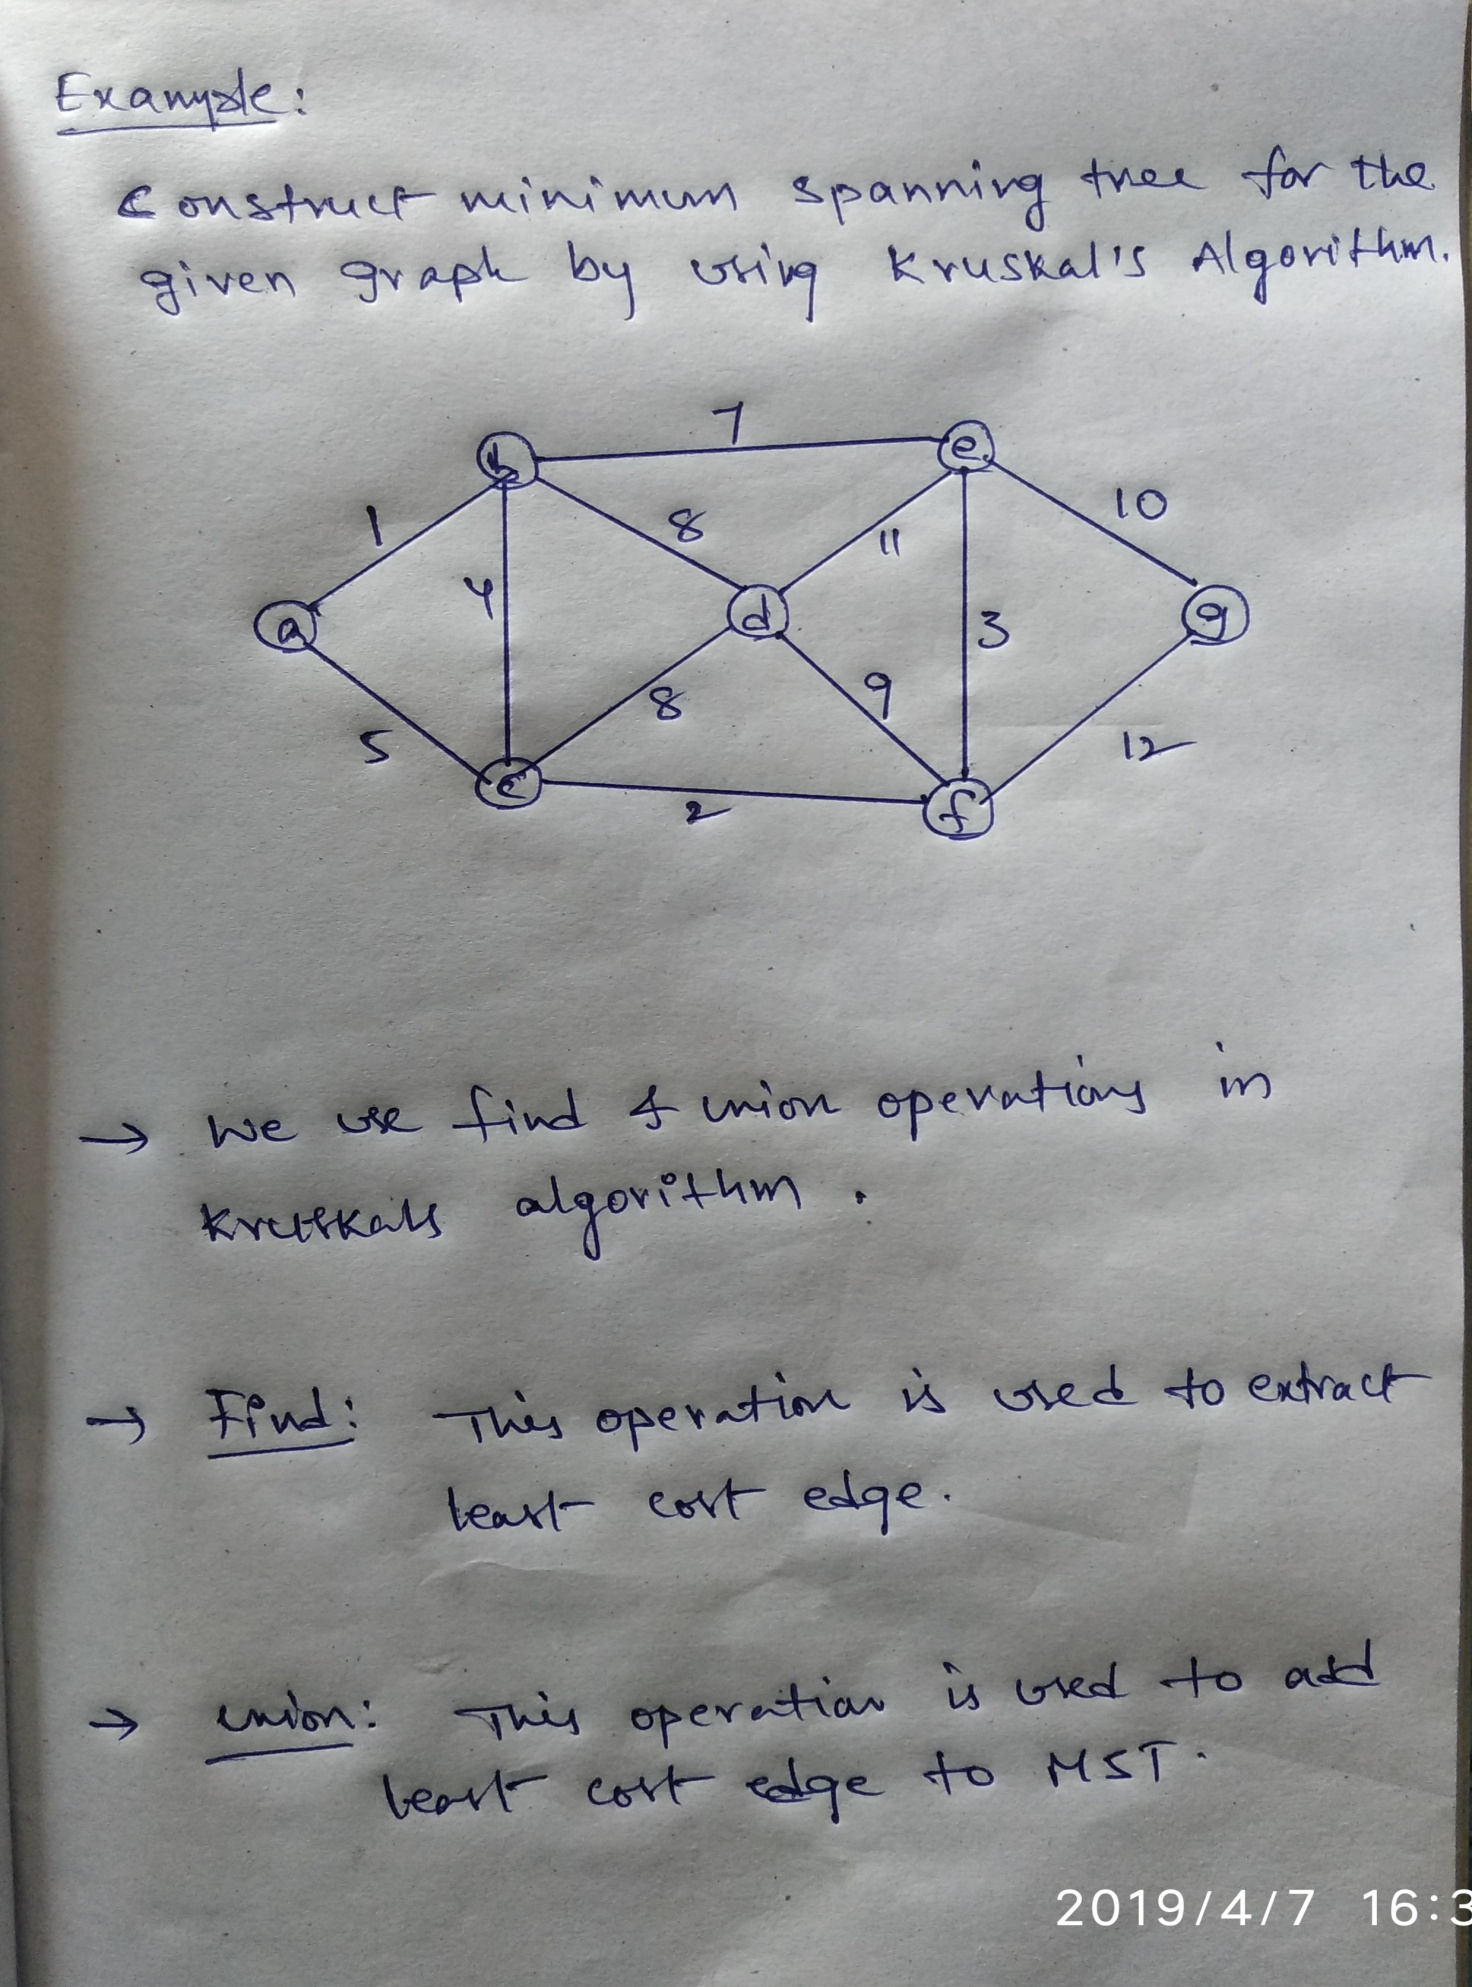 Example:
Construct minimum spanning tree for the
given graph by using Kruskal's Algorithm.
7
b
e
1
8
11
10
4
a
d
3
g
5
8
9
12
c
2
f
→ We use find & union operations in
Kruskals algorithm.
→ Find: This operation is used to extract
least cost edge.
→ union: This operation is used to add
least cost edge to MST.
2019/4/7 16:3